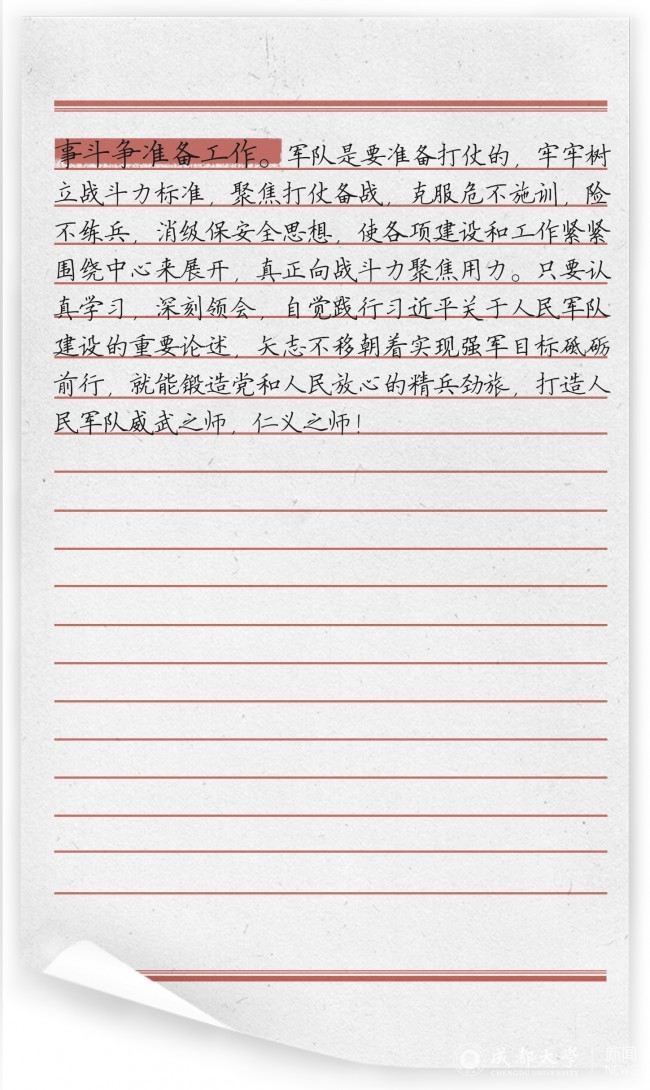 事斗争准备工作。军队是要准备打仗的，牢牢树
立战斗力标准，聚焦打仗备战，克服危不施训，险
不练兵，消级保安全思想，使各项建设和工作紧紧
围绕中心来展开，真正向战斗力聚焦用力。只要认
真学习，深刻领会，自觉践行习近平关于人民军队
建设的重要论述，矢志不移朝着实现强军目标砥砺
前行，就能锻造党和人民放心的精兵劲旅，打造人
民军队威武之师，仁义之师！
成都大学 新闻
CHENGDU UNIVERSITY